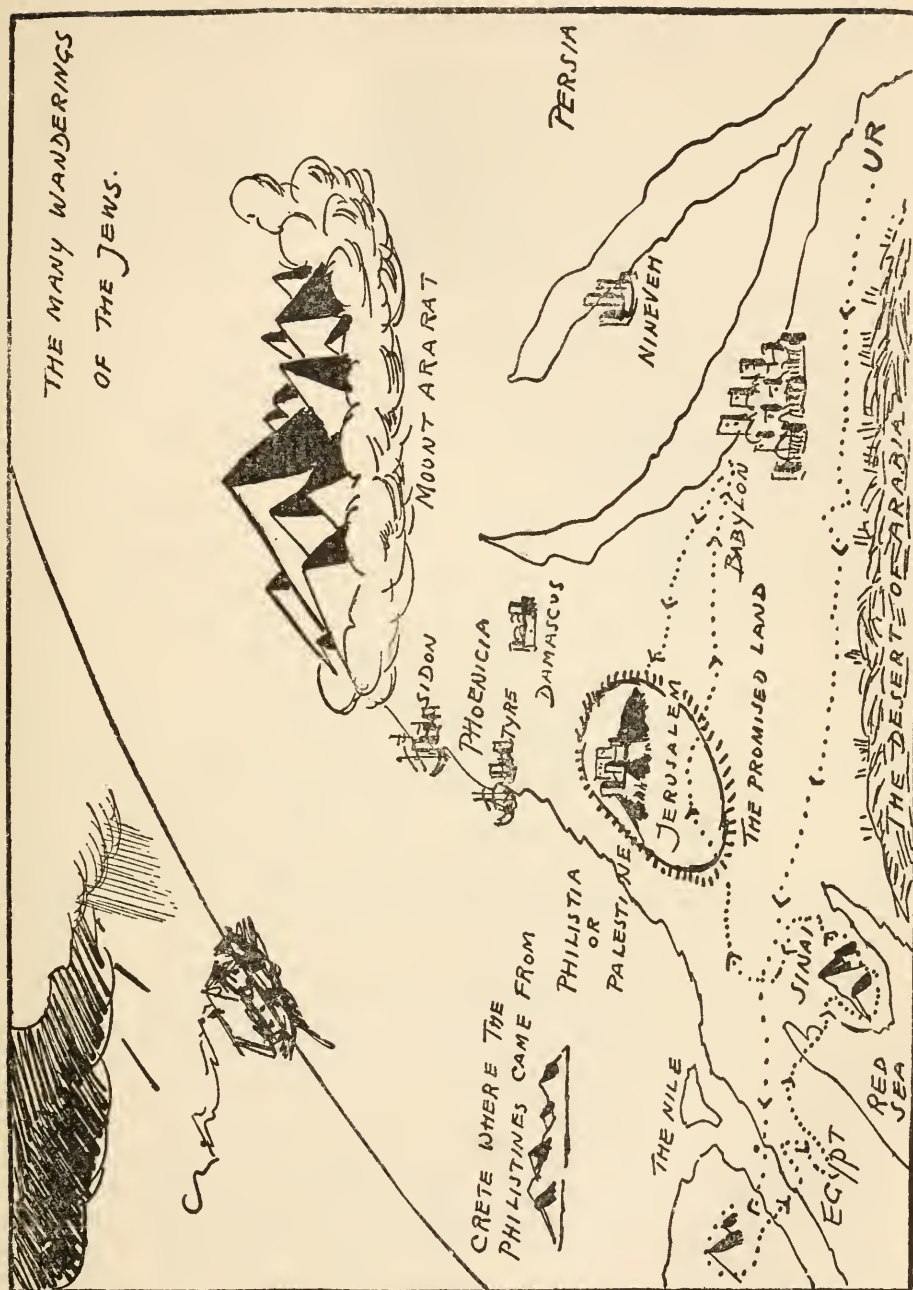 THE MANY WANDERINGS
OF THE JEWS.
MOUNT ARARAT
PERSIA
NINEVEH
SIDON
PHOENICIA
TYRE
DAMASCUS
BABYLON
UR
JERUSALEM
THE PROMISED LAND
THE DESERT OF ARABIA
CRETE WHERE THE
PHILISTINES CAME FROM
PHILISTIA
OR
PALESTINE
THE NILE
SINAI
EGYPT
RED
SEA